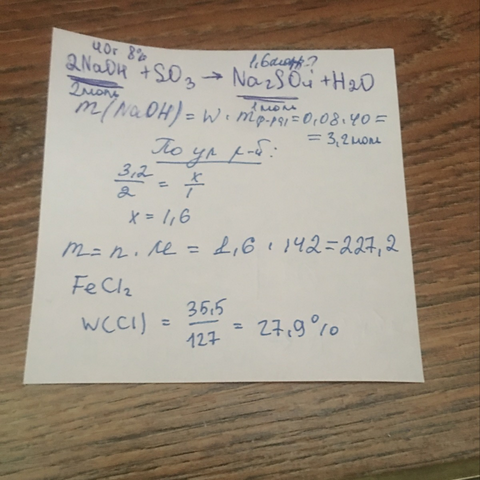 40г 8% 1,6моль?
2NaOH + SO₃ → Na₂SO₄ + H₂O
2моль 1моль
m(NaOH) = W · mр-ра = 0,08·40 =
= 3,2моль
По ур р-й:
3,2/2 = x/1
x = 1,6
m = n · M = 1,6 · 142 = 227,2
FeCl₂
W(Cl) = 35,5/127 = 27,9%